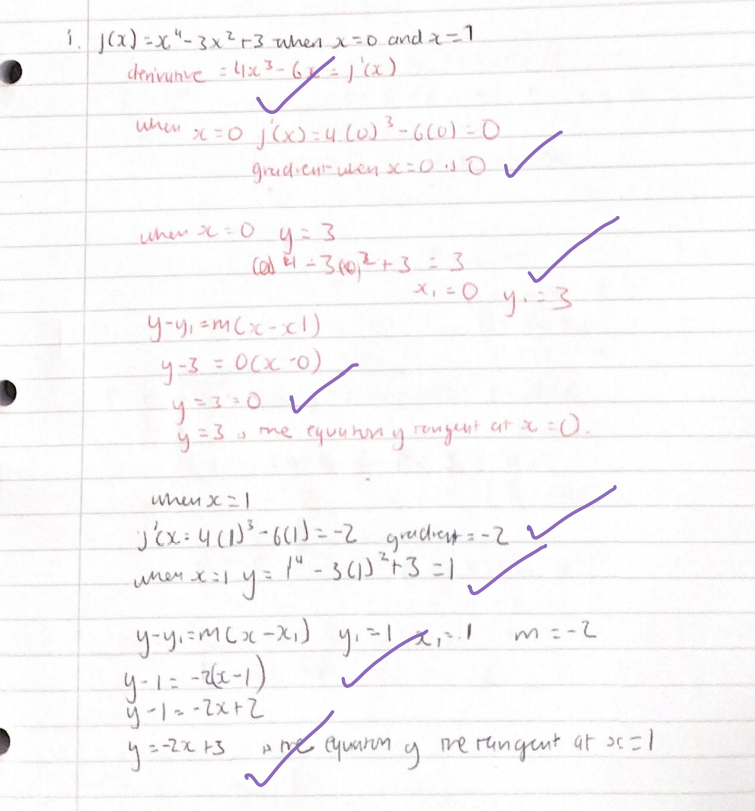 i. f(x) = x⁴ - 3x² + 3 when x = 0 and x = 1
derivative = 4x³ - 6x = f'(x)
when x = 0 f'(x) = 4(0)³ - 6(0) = 0
gradient when x = 0 is 0
when x = 0 y = 3
(0)⁴ - 3(0)² + 3 = 3
x₁ = 0 y₁ = 3
y - y₁ = m(x - x1)
y - 3 = 0(x - 0)
y = 3 = 0
y = 3 is the equation of tangent at x = 0.
when x = 1
f'(x = 4(1)³ - 6(1) = -2 gradient = -2
when x = 1 y = 1⁴ - 3(1)² + 3 = 1
y - y₁ = m(x - x₁) y₁ = 1 x₁ = 1 m = -2
y - 1 = -2(x - 1)
y - 1 = -2x + 2
y = -2x + 3 is the equation of the tangent at x = 1